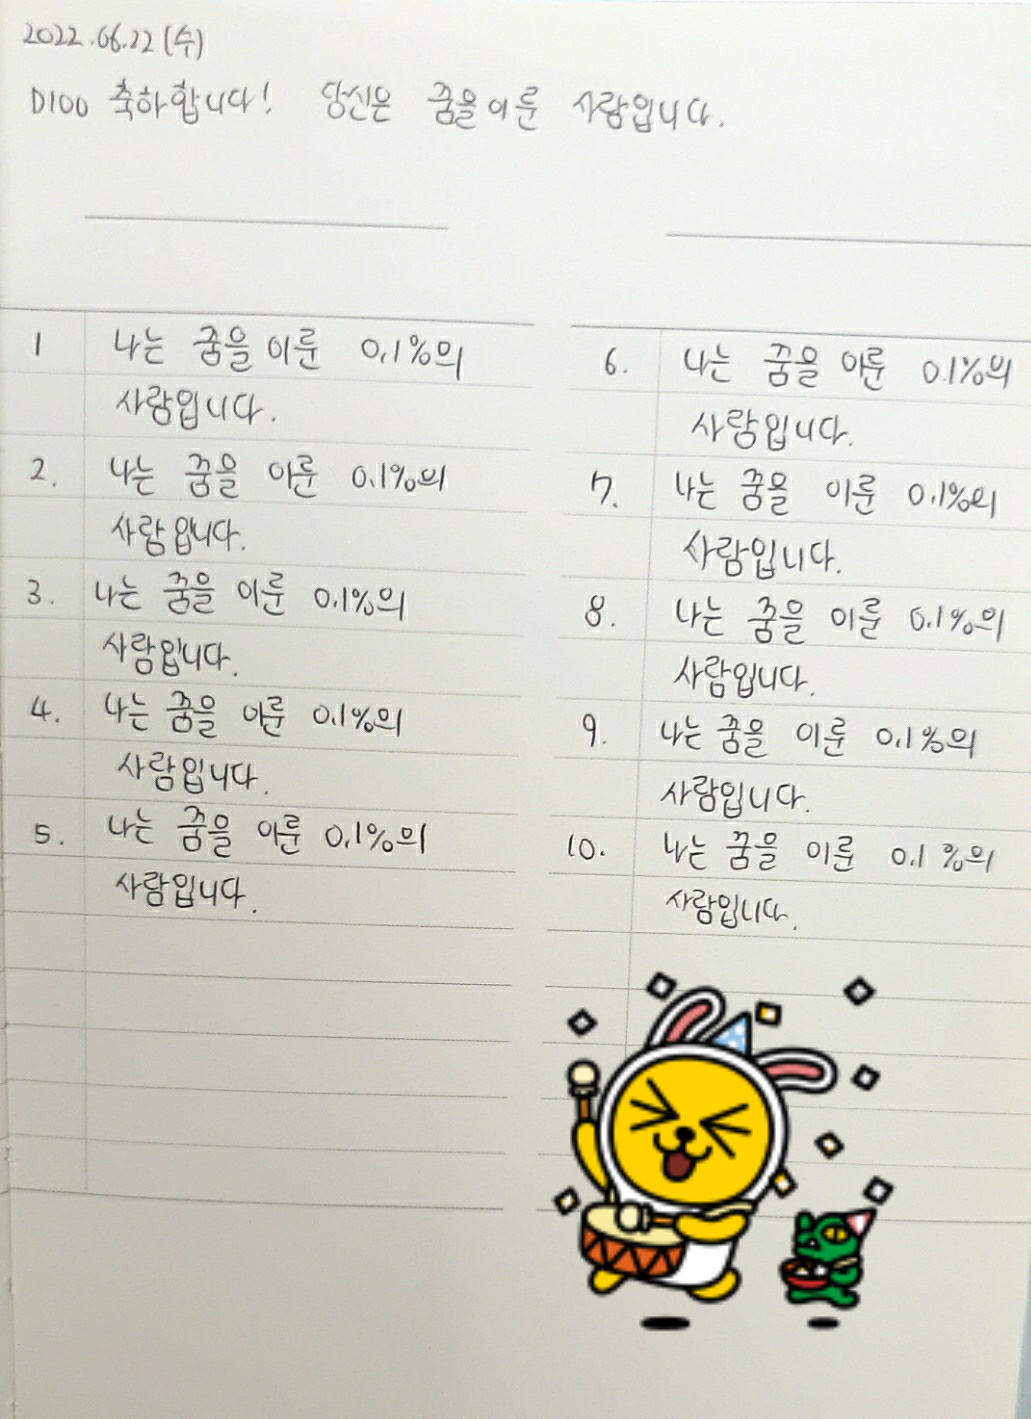 2022.06.22 (수)
D100 축하합니다! 당신은 꿈을 이룬 사람입니다.
1 나는 꿈을 이룬 0.1%의
사람입니다.
2. 나는 꿈을 이룬 0.1%의
사람입니다.
3. 나는 꿈을 이룬 0.1%의
사람입니다.
4. 나는 꿈을 이룬 0.1%의
사람입니다.
5. 나는 꿈을 이룬 0.1%의
사람입니다.
6. 나는 꿈을 이룬 0.1%의
사람입니다.
7. 나는 꿈을 이룬 0.1%의
사람입니다.
8. 나는 꿈을 이룬 0.1%의
사람입니다.
9. 나는 꿈을 이룬 0.1%의
사람입니다.
10. 나는 꿈을 이룬 0.1%의
사람입니다.